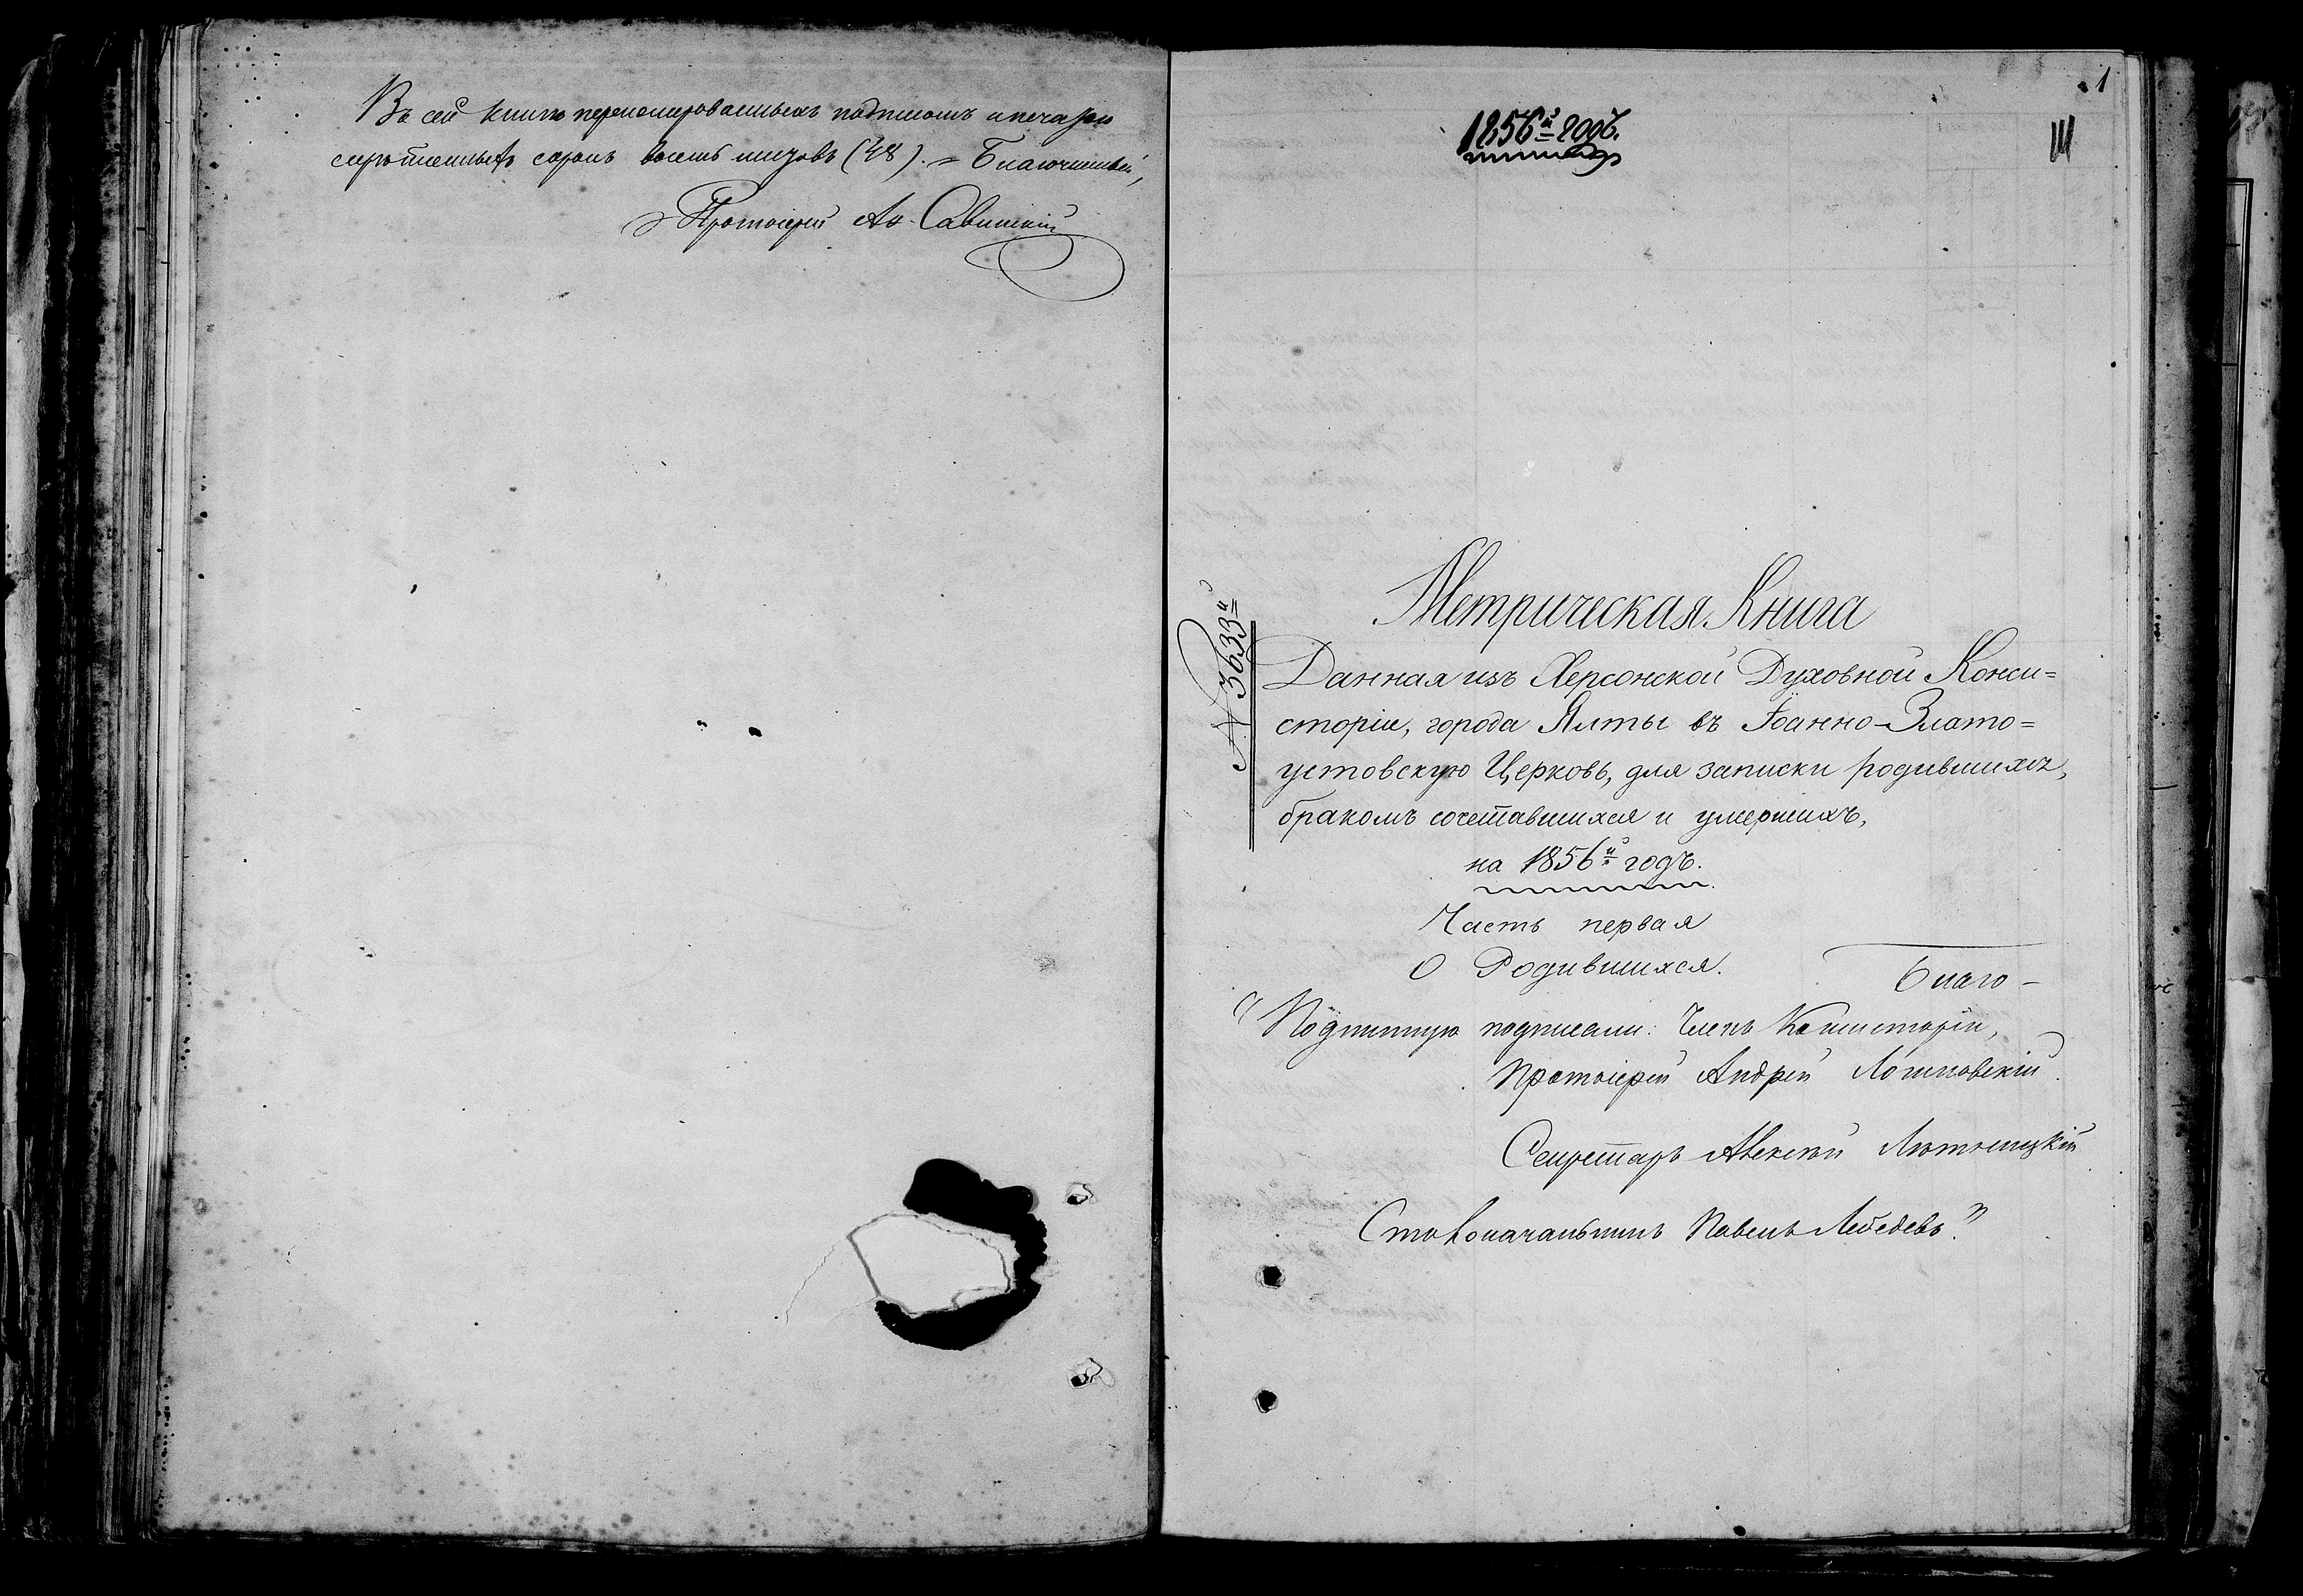 Въ сей книгѣ перенумерованныхъ подписомъ и печатью
скрѣпленныхъ сорокъ восемь листовъ (48). = Благочинный,
Протоіерей Ан. Савицкій
1
III
1856й годъ.
№ 3633й
Метрическая Книга
Данная изъ Херсонской Духовной Конси=
сторіи, города Ялты въ Іоанно-Злато=
устовскую Церковь, для записки родившихся,
бракомъ сочетавшихся и умершихъ,
на 1856й годъ.
Часть первая
О Родившихся.
Благо-
"Подлинную подписали: Членъ Консисторіи,
Протоіерей Андрей Логиновскій.
Секретарь Алексѣй
Столоначальникъ Павелъ Лебедевъ."